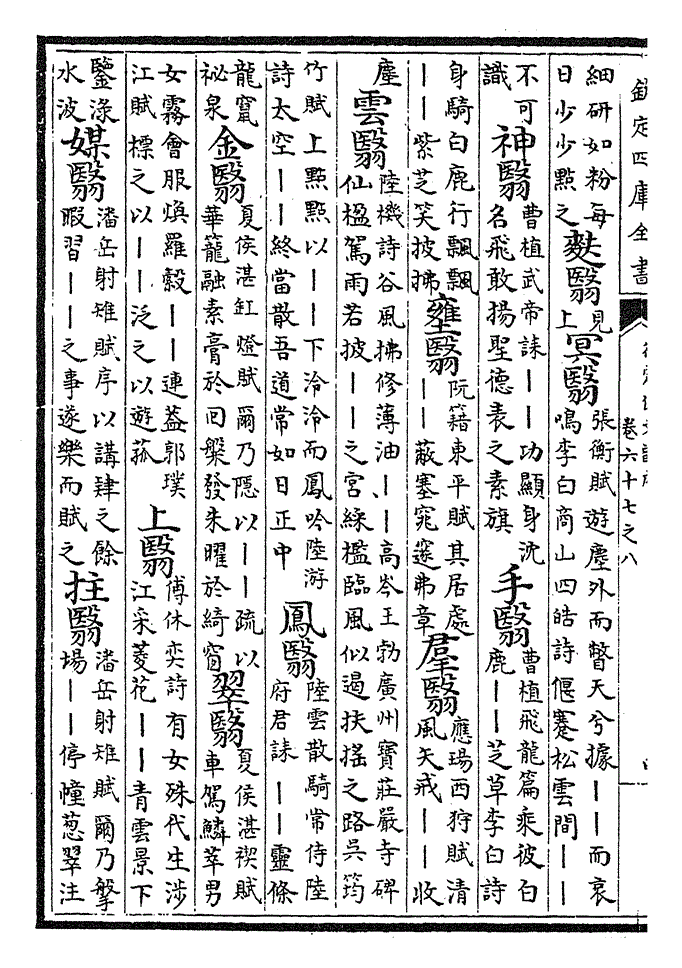 欽定四庫全書
卷六十七之八
細研如粉每日少少點之 麩翳 見上 冥翳 張衡賦遊塵外而瞥天兮據——而哀鳴李白商山四皓詩偃蹇松雲間——
不可識 神翳 曹植武帝誄——功顯身沈名飛敢揚聖德表之素旗 手翳 曹植飛龍篇乘彼白鹿——芝草李白詩
身騎白鹿行飄飄——紫芝笑披拂 壅翳 阮籍東平賦其居處——蔽塞窕邃弗章 羣翳 應瑒西狩賦清風矢戒——收
塵 雲翳 陸機詩谷風拂修薄油——高岑王勃廣州寶莊嚴寺碑仙楹駕雨若披——之宮綵檻臨風似遏扶搖之路吳筠
竹賦上㸃㸃以——下泠泠而鳳吟陸游詩太空——終當散吾道常如日正中 鳳翳 陸雲散騎常侍陸府君誄——靈條
龍竄祕泉 金翳 夏侯湛缸燈賦爾乃隱以——疏以華籠融素膏於回槃發朱曜於綺窗 翠翳 夏侯湛禊賦車駕鱗萃男
女霧會服煥羅縠——連葢郭璞江賦標之以——泛之以遊菰 上翳 傅休奕詩有女殊代生涉江采菱花——青雲景下
鑒渌水波 媒翳 潘岳射雉賦序以講肄之餘暇習——之事遂樂而賦之 拄翳 潘岳射雉賦爾乃擎場——停僮葱翠注